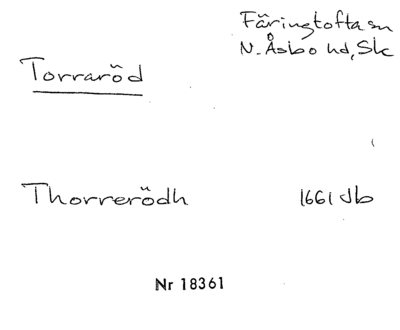 Färingtofta sn
N. Åsbo hd, Sk
Torraröd
Thorrerödh 1661 Jb
Nr 18361